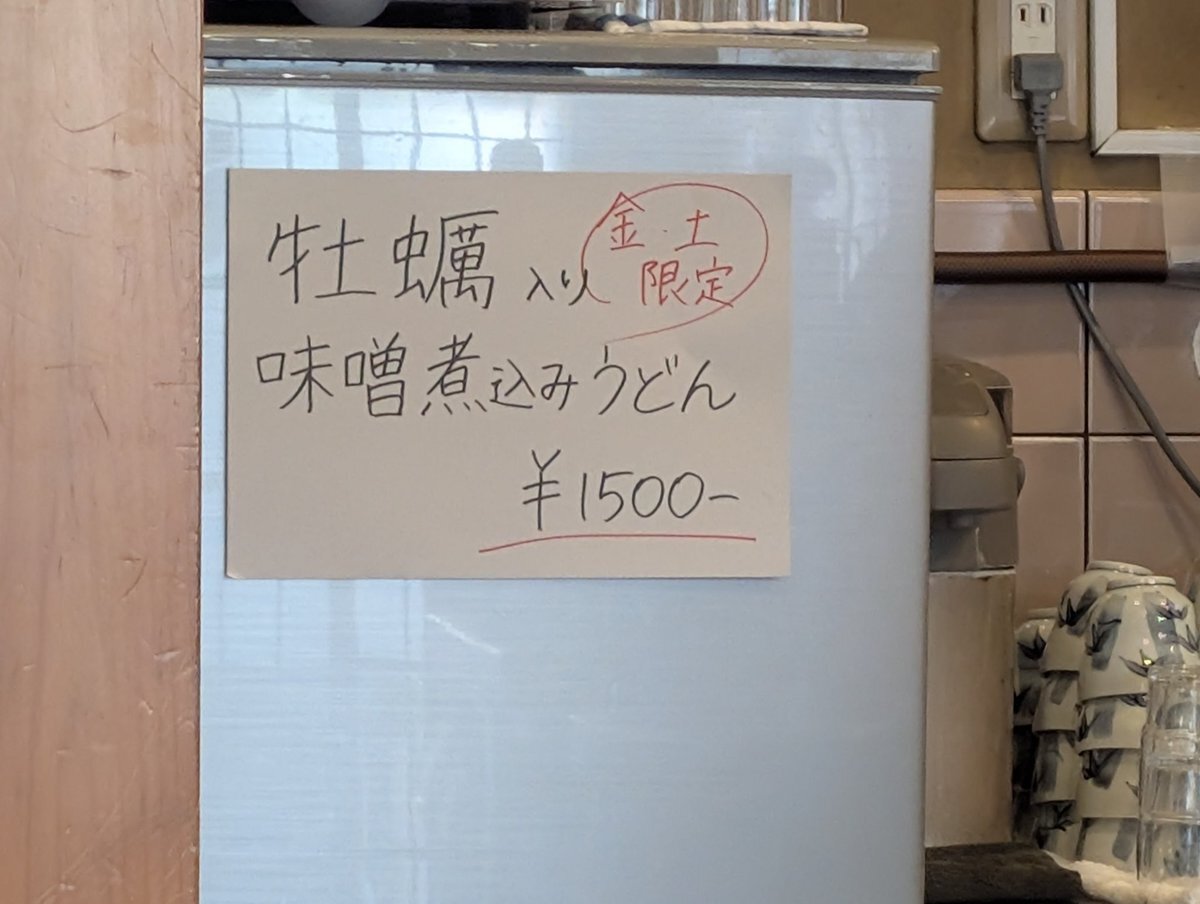 牡蠣入り
金・土
限定
味噌煮込みうどん
¥1500-